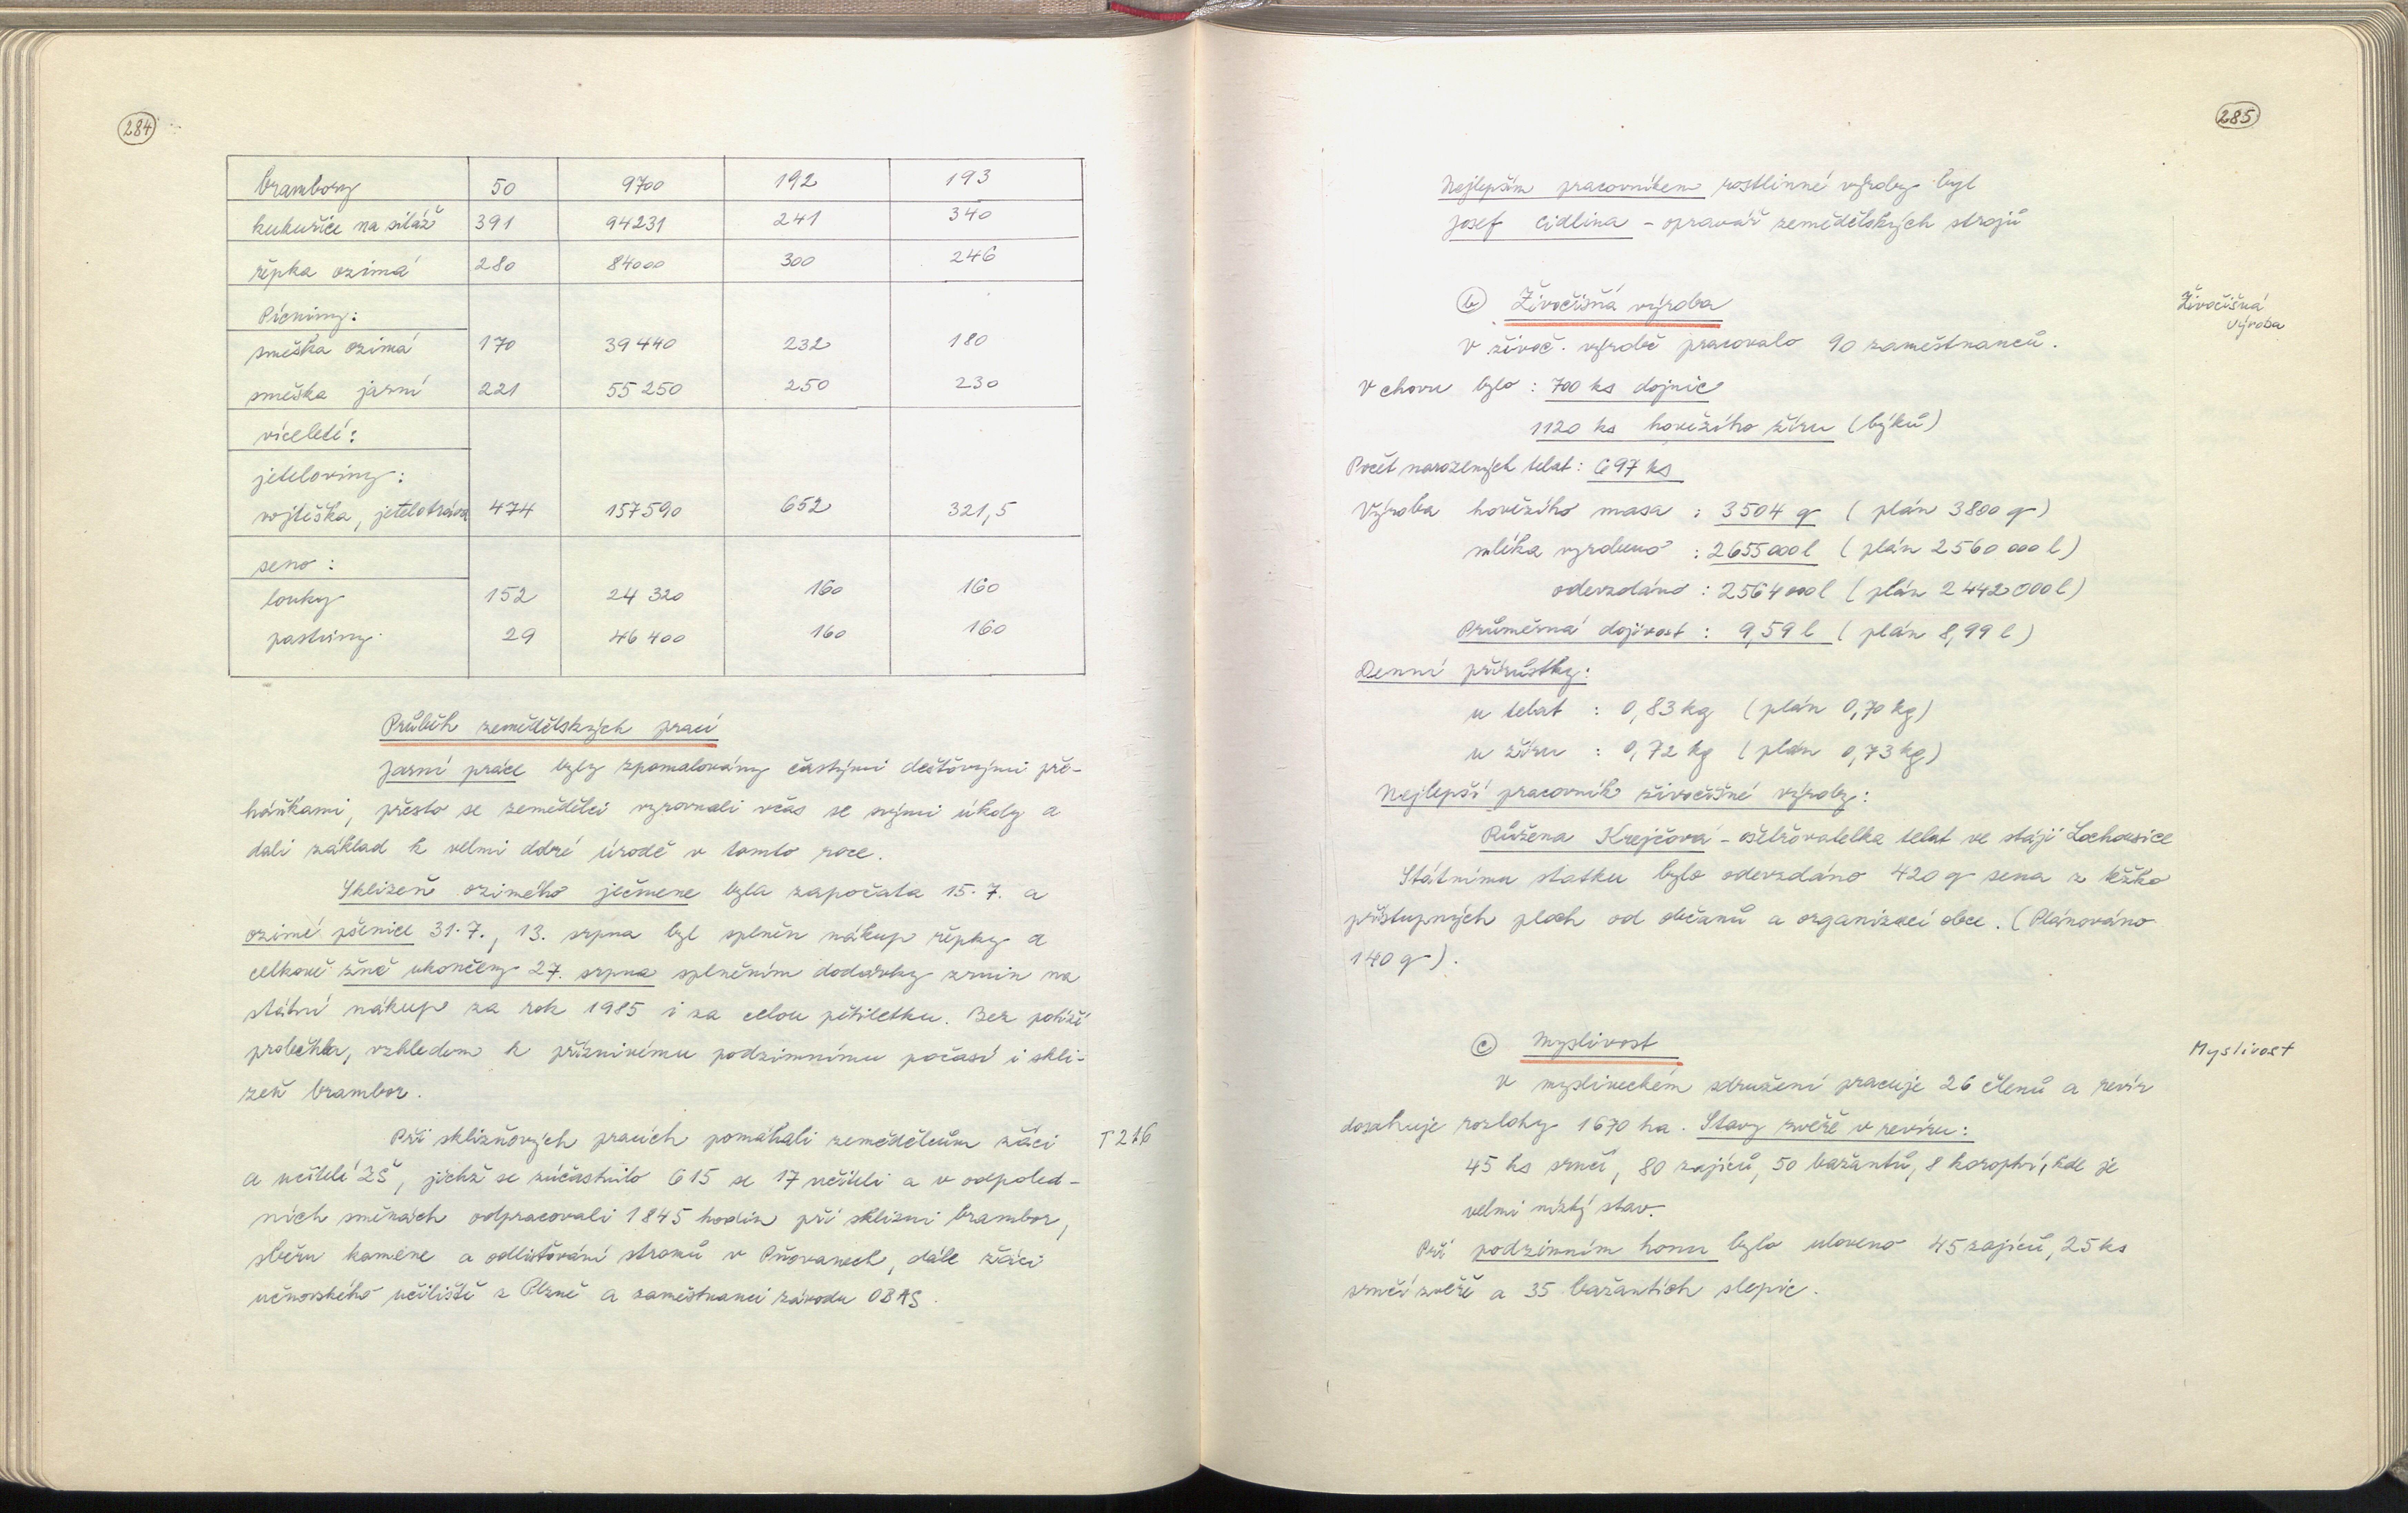 284
brambory 50 9700 192 193
kukuřice na siláž 391 94231 241 340
řepka ozimá 280 84000 300 246
Pícniny:
směska ozimá 170 39440 232 180
směska jarní 221 55 250 250 230
víceleté:
jeteloviny:
vojtěška, jetelotráva 474 157590 652 321,5
seno:
louky 152 24 320 160 160
pastviny 29 46 400 160 160
Průběh zemědělských prací
Jarní práce byly zpomalovány častými dešťovými pře-
háňkami, přesto se zemědělci vyrovnali včas se svými úkoly a
dali základ k velmi dobré úrodě v tomto roce.
Sklizeň ozimého ječmene byla započata 15.7. a
ozimé pšenice 31.7., 13. srpna byl splněn nákup řepky a
celkově žně ukončeny 27. srpna splněním dodávky zrnin na
státní nákup za rok 1985 i za celou pětiletku. Bez potíží
proběhla, vzhledem k příznivému podzimnímu počasí i skli-
zeň brambor.
Při sklizňových pracích pomáhali zemědělcům žáci T 216
a učitelé ZŠ, jichž se zúčastnilo 615 se 17 učiteli a v odpoled-
ních směnách odpracovali 1845 hodin při sklizni brambor,
sběru kamene a odlisťování stromů v Pňovanech, dále žáci
učňovského učiliště z Plzně a zaměstnanci závodu OBAS.
285
Nejlepším pracovníkem rostlinné výroby byl
Josef Cidlina - opravář zemědělských strojů
b Živočišná výroba
Živočišná
výroba
V živoč. výrobě pracovalo 90 zaměstnanců.
V chovu bylo : 700 ks dojnic
1120 ks hovězího žíru (býků)
Počet narozených telat: 697 ks
Výroba hovězího masa : 3504 q ( plán 3800 q )
mléka vyrobeno : 2655000 l ( plán 2560 000 l )
odevzdáno : 2564000 l ( plán 2 442 000 l )
Průměrná dojivost : 9,59 l ( plán 8,99 l )
Denní přírůstky:
u telat : 0,83 kg (plán 0,70 kg)
u žíru : 0,72 kg ( plán 0,73 kg)
Nejlepší pracovník živočišné výroby:
Růžena Krejčová - ošetřovatelka telat ve stáji Lochousice
Státnímu statku bylo odevzdáno 420 q sena z těžko
přístupných ploch od občanů a organizací obce. (Plánováno
140 q ).
c Myslivost
Myslivost
V mysliveckém sdružení pracuje 26 členů a revír
dosahuje rozlohy 1670 ha. Stavy zvěře v revíru:
45 ks srnčí, 80 zajíců, 50 bažantů, 8 koroptví, kde je
velmi nízký stav.
Při podzimním honu bylo uloveno 45 zajíců, 25 ks
srnčí zvěře a 35 bažantích slepic.